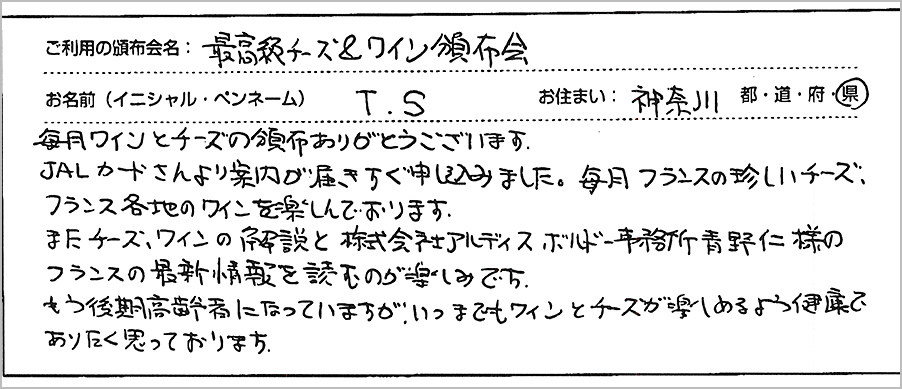 ご利用の頒布会名： 最高級チーズ&ワイン頒布会
お名前（イニシャル・ペンネーム） T.S お住まい： 神奈川 都・道・府・県
毎月ワインとチーズの頒布ありがとうございます.
JALカードさんより案内が届きすぐ申し込みました。毎月フランスの珍しいチーズ、
フランス各地のワインを楽しんでおります.
またチーズ、ワインの解説と株式会社アルディス ボルドー事務所青野仁様の
フランスの最新情報を読むのが楽しみです.
もう後期高齢者になっていますが、いつまでもワインとチーズが楽しめるよう健康で
ありたく思っております.